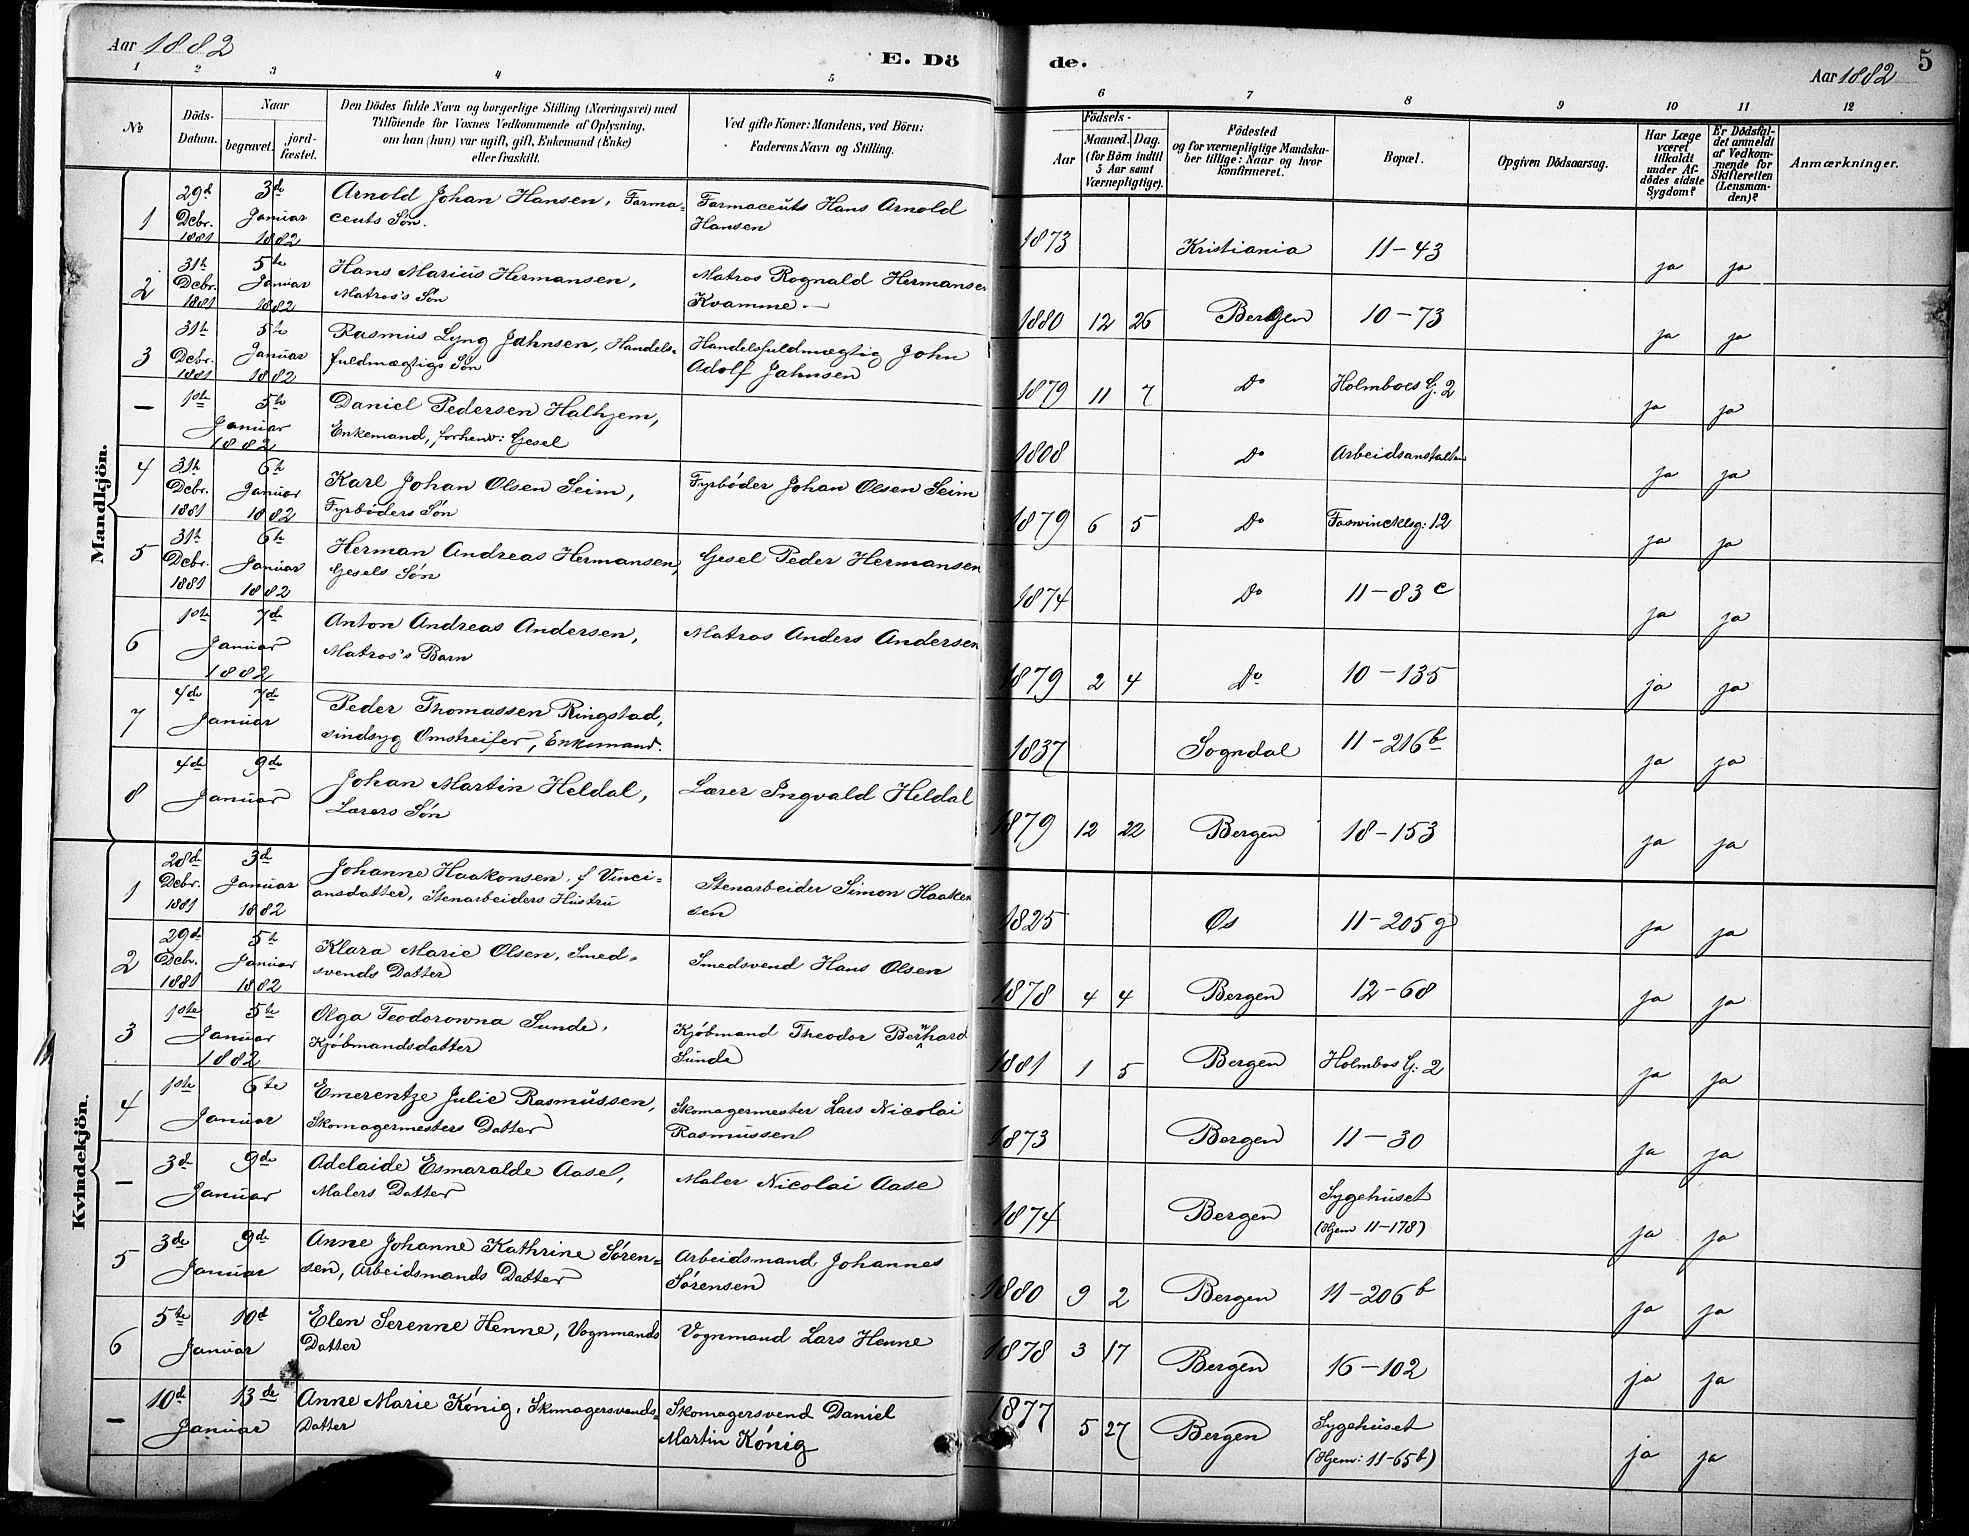 Aar 1882
E. Dö
de.
Aar 1882
5
1 2 3 4 5
6 7 8 9 10 11 12
No
Döds-Datum.
Naar
begravet.
jordfæstet.
Den Dödes fulde Navn og borgerlige Stilling (Næringsvei) med
Tilföiende for Voxnes Vedkommende af Oplysning,
om han (hun) var ugift, gift, Enkemand (Enke)
eller fraskilt.
Ved gifte Koner: Mandens, ved Börn:
Faderens Navn og Stilling.
Födsels-
Aar
Maaned. Dag.
(for Börn indtil
5 Aar samt
Værnepligtige).
Födested
og for værnepligtige Mandska-
ber tillige: Naar og hvor
konfirmeret.
Bopæl.
Opgiven Dödsaarsag.
Har Læge
været
tilkaldt
under Af-
dödes sidste
Sygdom?
Er Dödsfal-
det anmeldt
af Vedkom-
mende for
Skifteretten
(Lensman-
den)?
Anmærkninger.
Mandkjön.
1 29d Decbr. 1881 3d Januar 1882 Arnold Johan Hansen, Farma-
ceuts Søn. Farmaceuts Hans Arnold
Hansen 1873 Kristiania 11-43 ja ja
2 31te Decbr. 1881 5te Januar 1882 Hans Marius Hermansen,
Matros's Søn Matros Rognald Hermansen
Kvamme.- 1880 12 26 Bergen 10-73 ja ja
3 31te Decbr. 1881 5te Januar 1882 Rasmus Lyng Jahnsen, Handels-
fuldmægtigs Søn Handelsfuldmægtig John
Adolf Jahnsen 1879 11 7 Do Holmboes G: 2 ja ja
- 1ste 5te Januar 1882 Daniel Pedersen Halhjem,
Enkemand, forhenv: Gesel 1808 Do Arbeidsanstalten ja ja
4 31te Decbr. 1881 6te Januar 1882 Karl Johan Olsen Seim,
Fyrbøders Søn Fyrbøder Johan Olsen Seim 1879 6 5 Do Foswincklsg: 12 ja ja
5 31te Decbr. 1881 6te Januar 1882 Herman Andreas Hermansen,
Gesels Søn Gesel Peder Hermansen 1874 Do 11-83 c ja ja
6 1ste 7de Januar 1882 Anton Andreas Andersen,
Matros's Barn Matros Anders Andersen 1879 2 4 Do 10-135 ja ja
7 4de 7de Januar Peder Thomassen Ringstad,
sindsyg Omstreifer, Enkemand. 1837 Sogndal 11-216 b ja ja
8 4de 9de Januar Johan Martin Heldal,
Lærers Søn Lærer Ingvald Heldal 1879 12 22 Bergen 18-153 ja ja
Kvindekjön.
1 28d Decbr. 1881 3d Januar 1882 Johanne Haakonsen, f Vinci-
ansdatter, Stenarbeiders Hustru Stenarbeider Simon Haaken
sen 1825 Os 11-205 g ja ja
2 29de Decbr. 1881 5te Januar 1882 Klara Marie Olsen, Smed-
svends Datter Smedsvend Hans Olsen 1878 4 4 Bergen 12-68 ja ja
3 1ste 5te Januar 1882 Olga Teodorowna Sunde,
Kjøbmandsdatter Kjøbmand Theodor Bernhard
Sunde 1881 1 5 Bergen Holmbos G: 2 ja ja
4 1ste 6te Januar Emerentze Julie Rasmussen,
Skomagermesters Datter Skomagermester Lars Nicolai
Rasmussen 1873 Bergen 11-30 ja ja
- 3d 9de Januar Adelaide Esmaralde Aase,
Malers Datter Maler Nicolai Aase 1874 Bergen Sygehuset
(Hjem 11-178) ja ja
5 3de 9de Januar Anne Johanne Kathrine Søren-
sen, Arbeidsmands Datter Arbeidsmand Johannes
Sørensen 1880 9 2 Bergen 11-206 b ja ja
6 5te 10d Januar Elen Serenne Henne, Vognmands
Datter Vognmand Lars Henne 1878 3 17 Bergen 16-102 ja ja
- 10de 13de Januar Anne Marie König, Skomagersvends-
Datter Skomagersvend Daniel
Martin König 1877 5 27 Bergen Sygehuset
(Hjem: 11-65b) ja ja